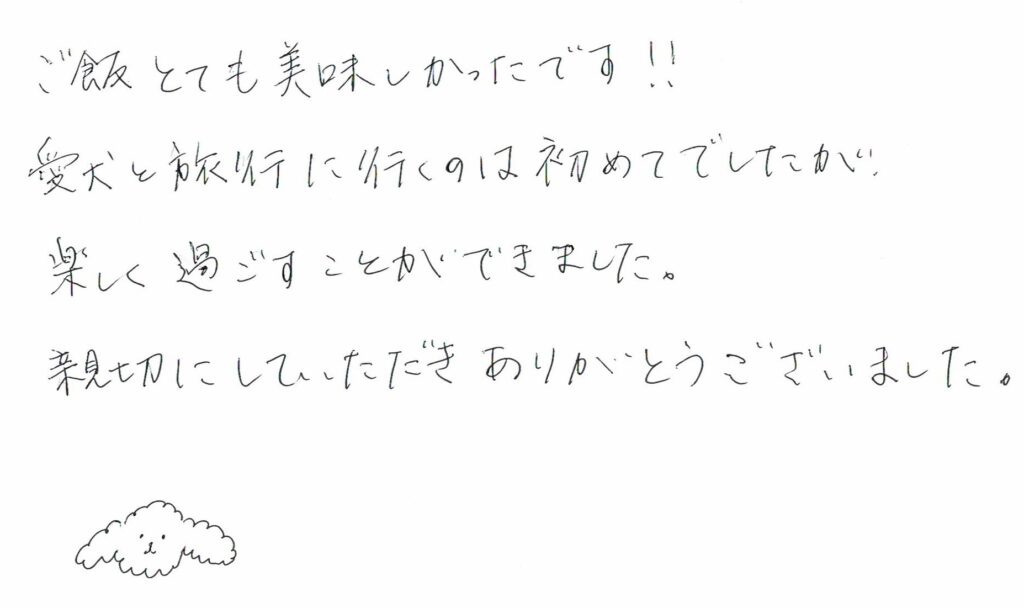 ご飯とても美味しかったです!!
愛犬と旅行に行くのは初めてでしたが
楽しく過ごすことができました。
親切にしていただきありがとうございました。